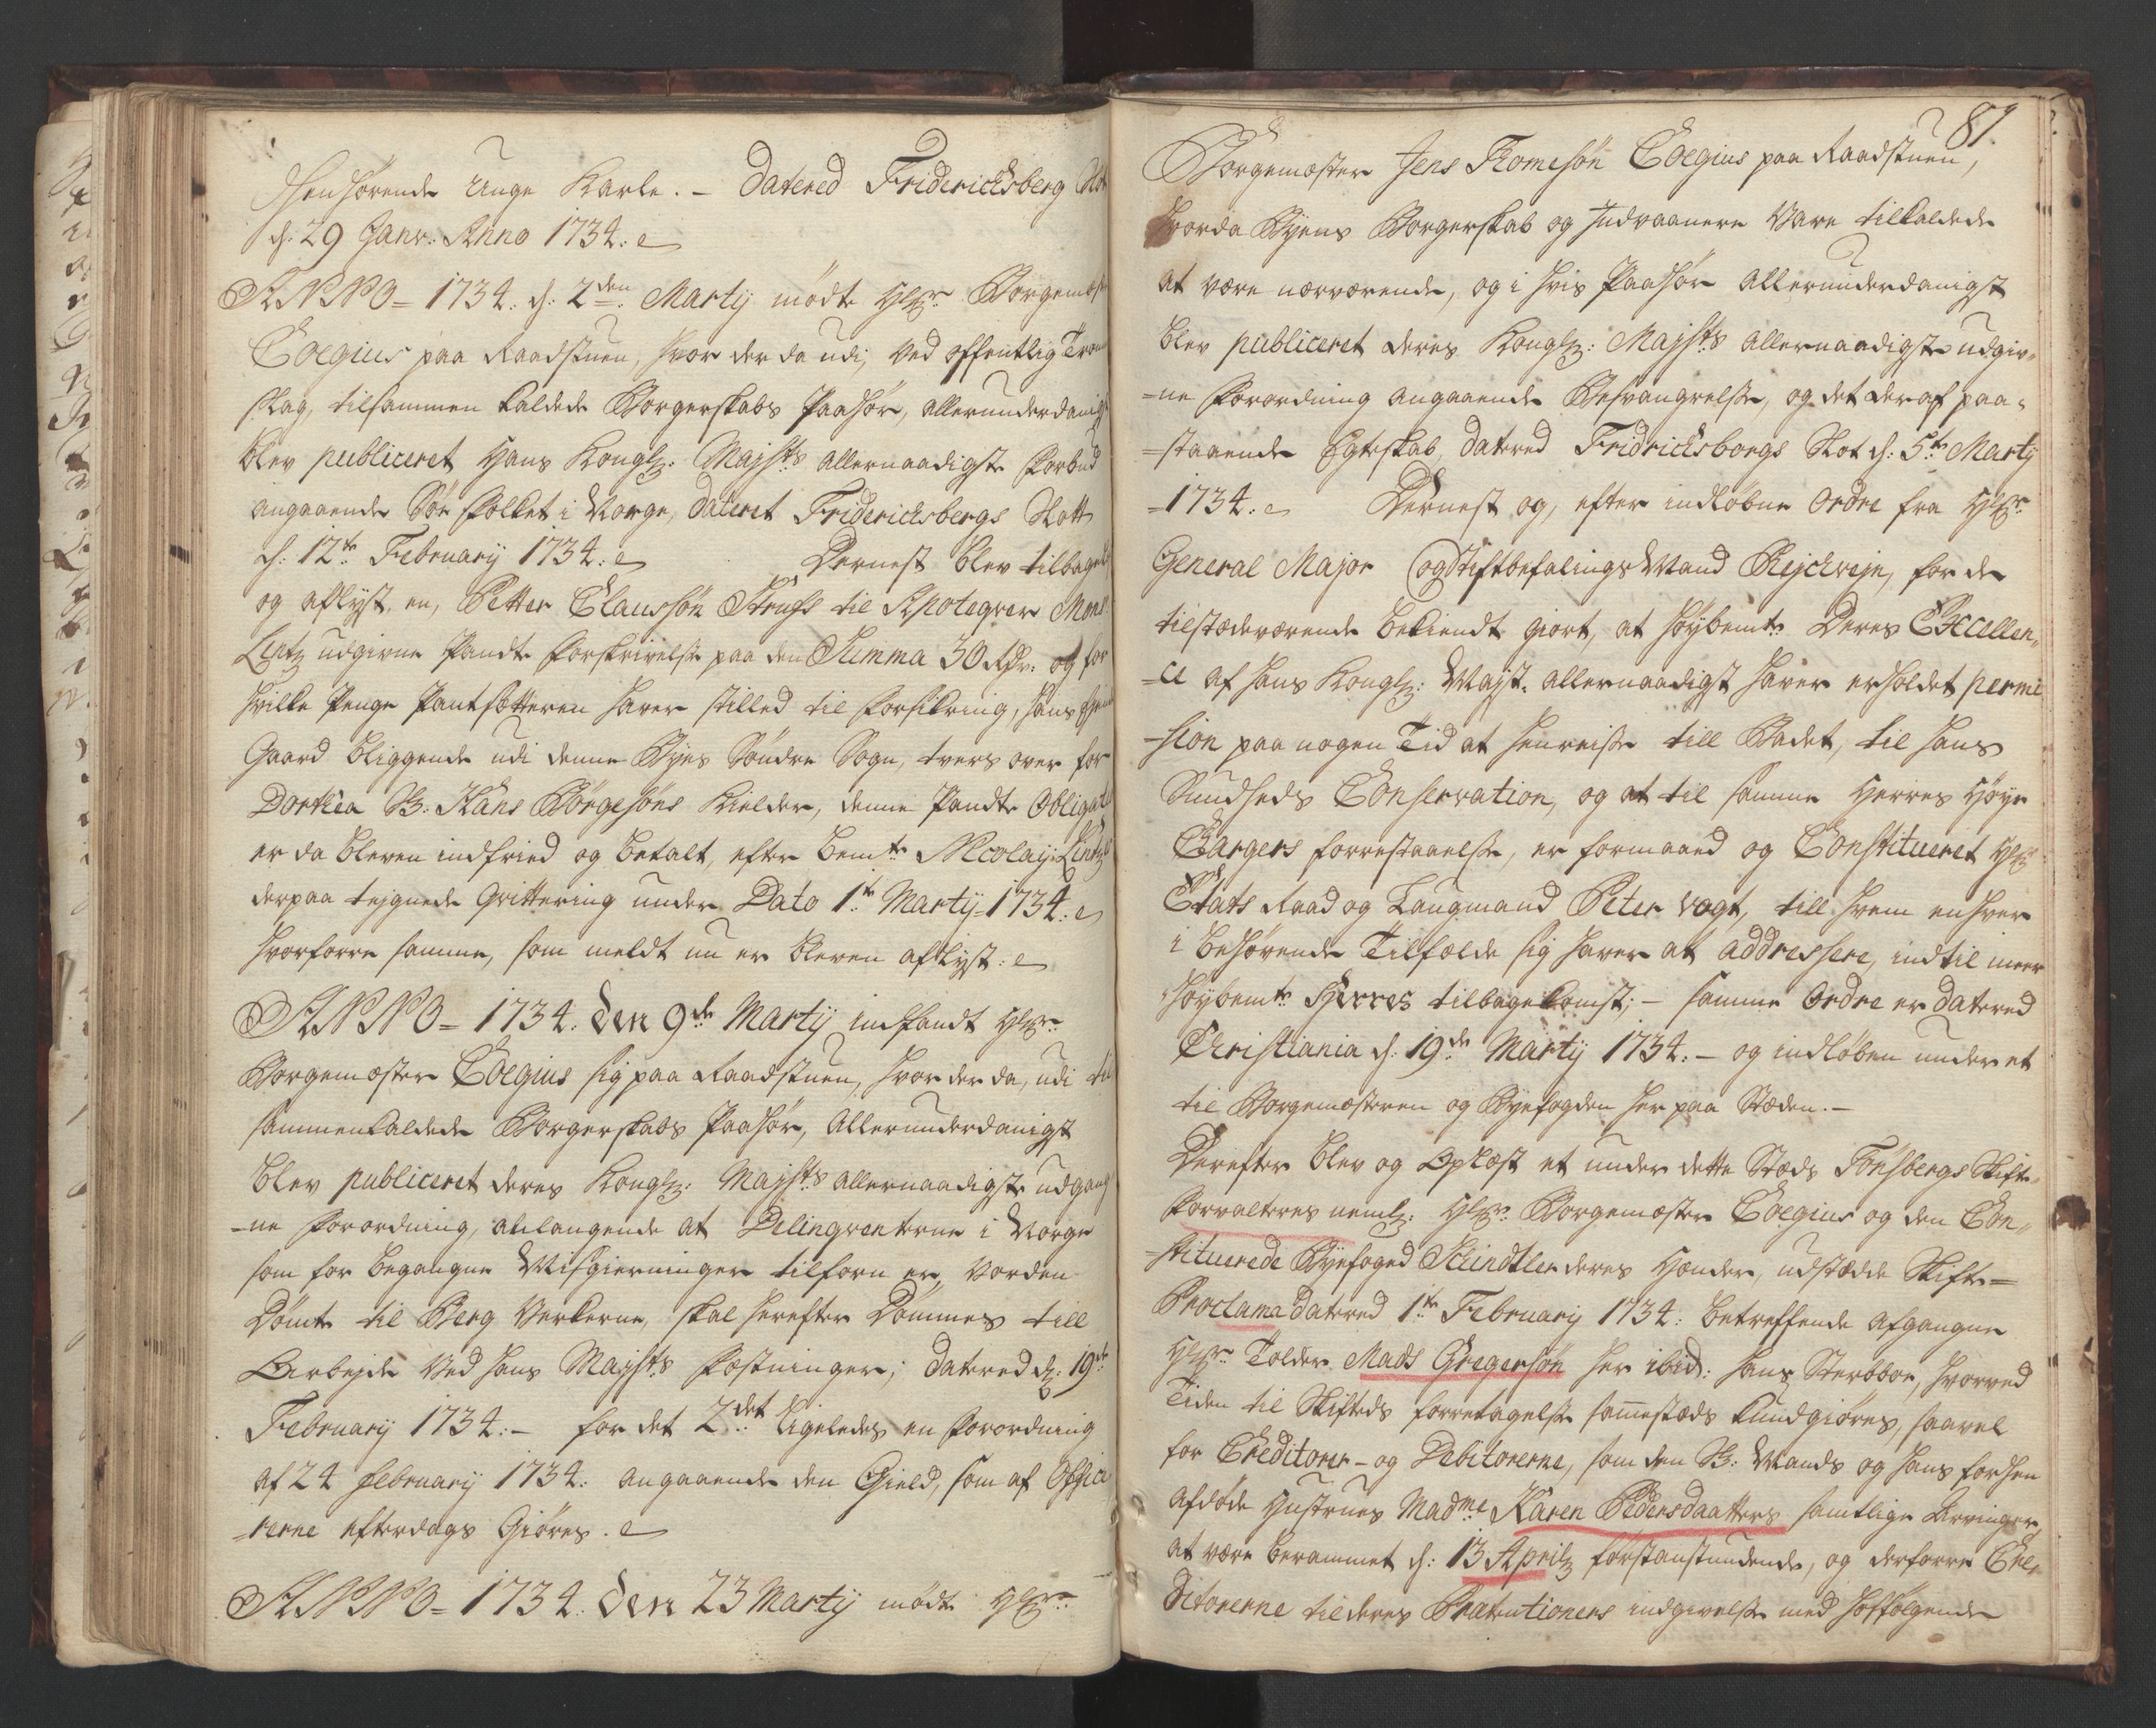 henhørende Unge Karle. - Datered Fridericksberg Slot
d: 29 Janv: Anno 1734.
ANNO = 1734. d: 2den Martij mødte Hr. Borgemæst
Coegius paa Raadstuen, hvor der da udi, ved offentlig Trom
slag, tilsammen kaldede Borgerskabs Paahør, allerunderdanigst
blev publiceret Hans Kongl: Majsts allernaadigste Forbud
angaaende Søe Folket i Norge, dateret Fridericksbergs Slott
d: 12te February 1734. Dernest blev tilbage
og aflyst, en, Petter Claussøn til Apoteqver Mons
Lentz udgivne Pandte Forskrivelse paa den Summa 50 Rdr: og for
hvilke Penge Pantsætteren haver stilled til Forsikring, hans
Gaard bliggende udi denne Byes Søndre Sogn, tvers over for
Dorthea Sl: Hans Børgesøns Kielder, denne Pandte Obligation
er da bleven indfried og betalt, efter bemte Nicolaij Lentzes
derpaa tegnede Qvittering under Dato 1te Martij 1734.
hvorforre samme, som meldt nu er bleven aflyst.
ANNO = 1734. den 9de Martij indfandt Hr.
Borgemæster Coegius sig paa Raadstuen, hvor der da, udi til
sammenkaldede Borgerskabs Paahør, Allerunderdanigst
blev publiceret deres Kongl: Majsts allernaadigste udgang
=ne Forordning, anlangende at Delinqventerne i Norge
som for begangne Misgierninger tilforn er, vorden
Dømte til Berg Verkerne, skal herefter Dømmes till
Arbejde ved hans Majsts Fæstninger; datered d: 19de
February 1734. - for det 2det ligeledes en Forordning
af 24 february 1734. angaaende den Gield, som af Office
=rerne efterdags Giøres.
ANNO = 1734. den 23 Martij mødte Hr.
87.
Borgemæster Jens Tomesøn Coegius paa Raadstuen,
hvorda Byens Borgerskab og Indvaanere vare tilkaldede
at være nærværende, og i hvis Paahør allerunderdanigst
blev publiceret deres Kongl: Majsts allernaadigste udgiv=
=ne Forordning angaaende Besvangrelse, og det deraf paa=
=staaende Egteskab, datered Fridricksborgs Slot d: 5te Martij
=1734. Dernest og, efter indløbne Ordre fra Hr.
General Major og Stiftbefalings Mand Rejchvejn, for de
tilstædeværende bekiendt giort, at høybemte Deres Excellen=
=ce af hans Kongl: Majst. allernaadigst haver erholdet permi
=sion paa nogen Tid at henreise till Badet, til hans
Sundheds Conservation, og at til samme Herres Høye
Chargers forrestaaelse, er formaaed og Constitueret Hr.
Etats Raad og Laugmand Peter Vogt, till hvem enhver
i behørende Tilfælde sig haver at addressere, indtil meer
høybemte Herres tilbagekomst; - samme Ordre er datered
Christiania d: 19de Martij 1734. - og indløben under et
til Borgemæsteren og Byefogden her paa Stæden. -
Derefter blev og Oplæst et under dette Stæds Tønsbergs Skifte=
Forvalteres neml: Hr. Borgemæster Coegius og den Con=
=stituerede Byefoged Schindtler deres Hænder, udstædde Skifte=
Proclama datered 1te February 1734: betreffende afgangne
Hr. Tolder Mads Gregersøn her ibid: hans Sterbboe, hvorved
Tiden til Skifteds forretagelse sammestæds kundgiøres, saavel
for Creditorer - og Debitorerne, som den Sl: Mands og hans forhen
afdøde Hustrues Madme Karen Pedersdaatters samtlige Arvinger
at være berammet d: 13 April førstanstundende, og derforre Cre=
ditorerne til deres Prætentioners indgivelse med hosfølgende